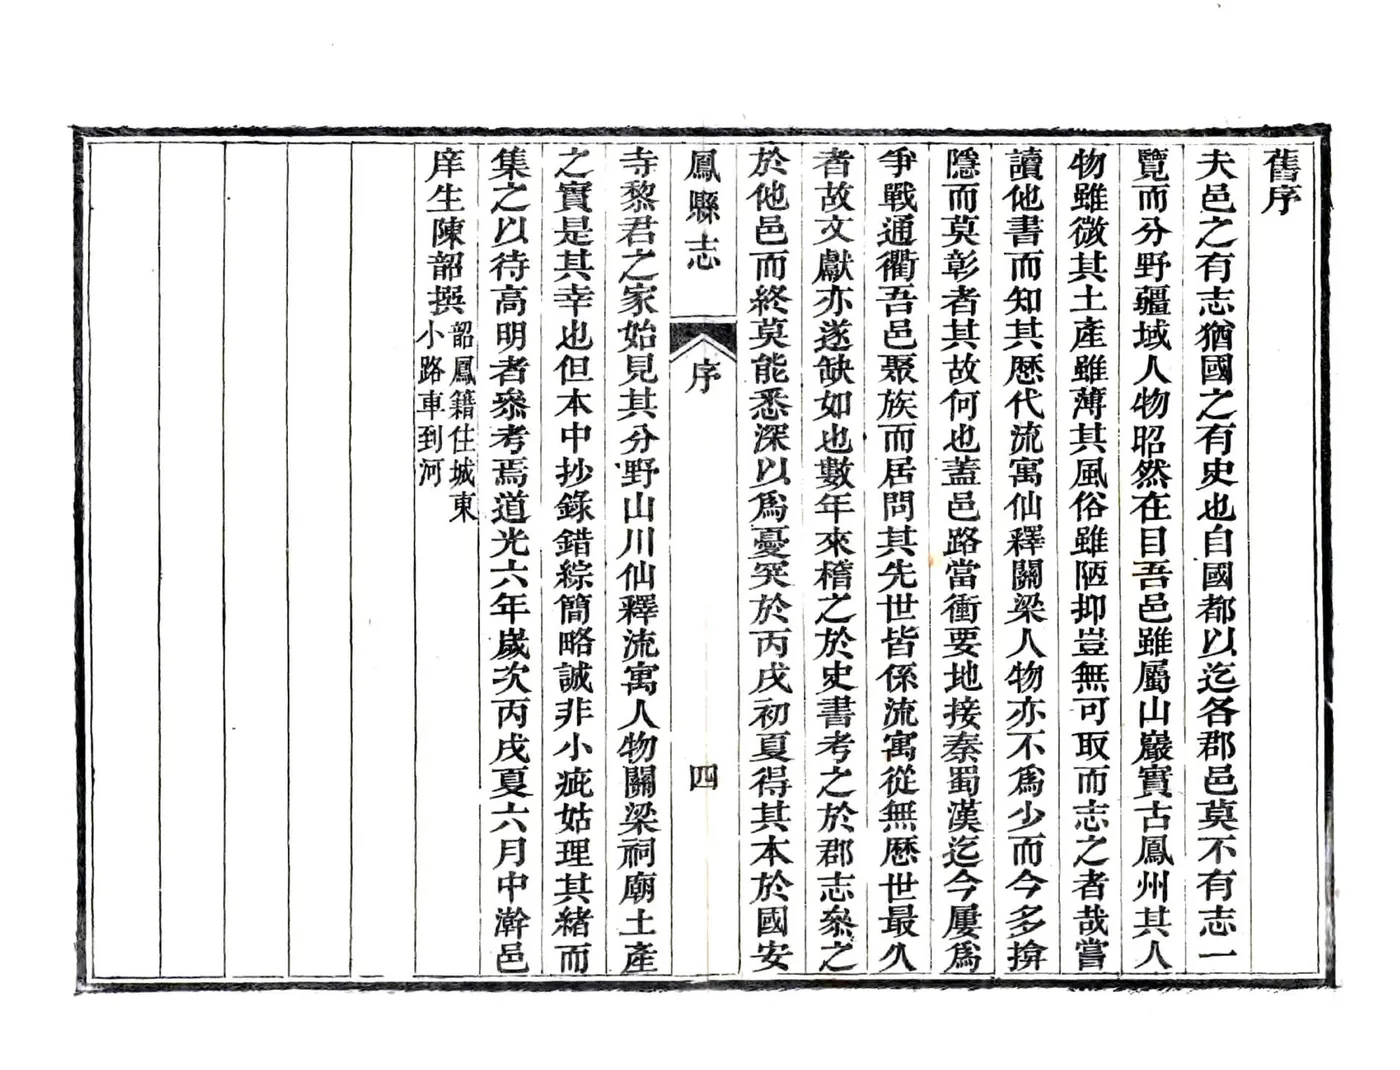 舊序
夫邑之有志猶國之有史也自國都以迄各郡邑莫不有志一
覽而分野疆域人物昭然在目吾邑雖屬山巖實古鳳州其人
物雖微其土產雖薄其風俗雖陋抑豈無可取而志之者哉嘗
讀他書而知其歷代流寓仙釋關梁人物亦不爲少而今多揜
隱而莫彰者其故何也蓋邑路當衝要地接秦蜀漢迄今屢爲
爭戰通衢吾邑聚族而居問其先世皆係流寓從無歷世最久
者故文獻亦遂缺如也數年來稽之於史書考之於郡志叅之
於他邑而終莫能悉深以爲憂突於丙戌初夏得其本於國安
鳳縣志
序
四
寺黎君之家始見其分野山川仙釋流寓人物關梁祠廟土產
之實是其幸也但本中抄錄錯綜簡略誠非小疵姑理其緒而
集之以待高明者叅考焉道光六年歲次丙戌夏六月中澣邑
庠生陳韶撰
韶鳳籍住城東
小路車到河